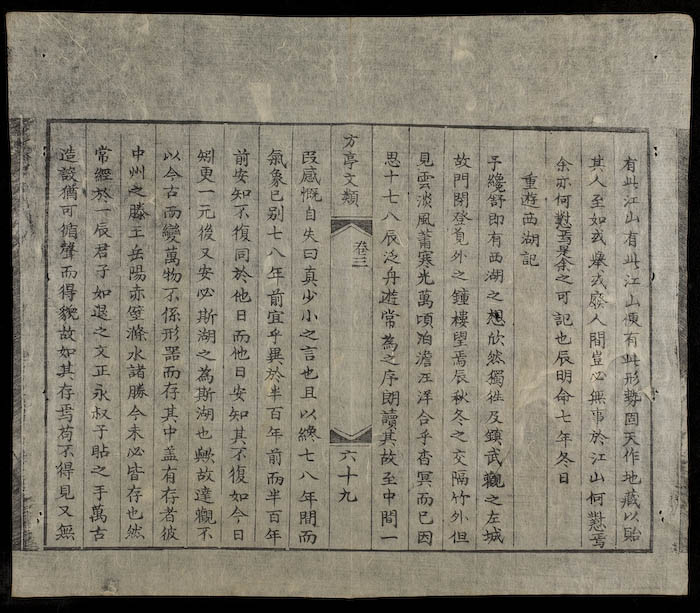 有此江山有此江山便有此形勢固天作地藏以貽
其人至如或舉或廢人間豈必無事於江山何懟焉
余亦何懟焉是余之可記也辰明命七年冬日
重遊西湖記
予纔舒即有西湖之想欣然獨徃及鎮武觀之左城
故門閉登覓外之鐘樓望焉辰秋冬之交隔竹外但
見雲淡風蕭寒光萬頃泊澹汪洋合乎杳冥而已因
思十七八辰泛舟遊常為之序朗讀其故至中間一
段感慨自失曰真少小之言也且以纔七八年間而
氣象已別七八年前宜乎異於半百年前而半百年
前安知不復同於他日而他日安知其不復如今日
矧更一元後又安必斯湖之為斯湖也歟故達觀不
以今古而變萬物不係形器而存其中盖有存者彼
中州之滕王岳陽赤壁滁水諸勝今未必皆存也然
常經於一辰君子如退之文正永叔子貼之手萬古
造談猶可循聲而得貌故如其存焉苟不得見又無
方亭文類
卷三
六十九